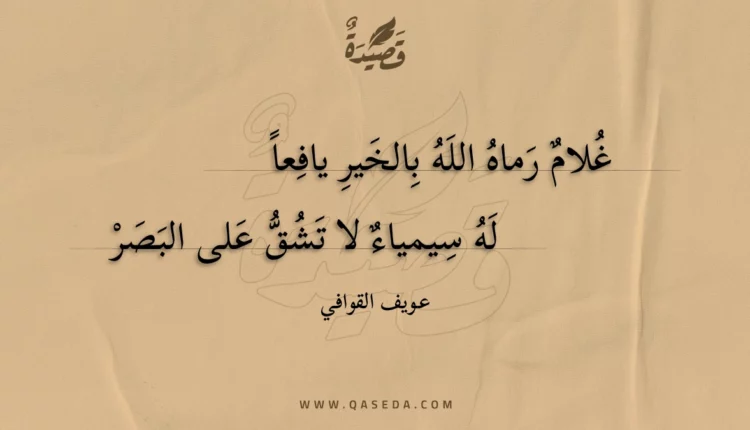 قَصِيدَةٌ
غُلامٌ رَماهُ اللَهُ بِالخَيرِ يافِعاً
لَهُ سِيمياءٌ لا تَشُقُّ عَلى البَصَرْ
عويف القوافي
WWW.QASEDA.COM